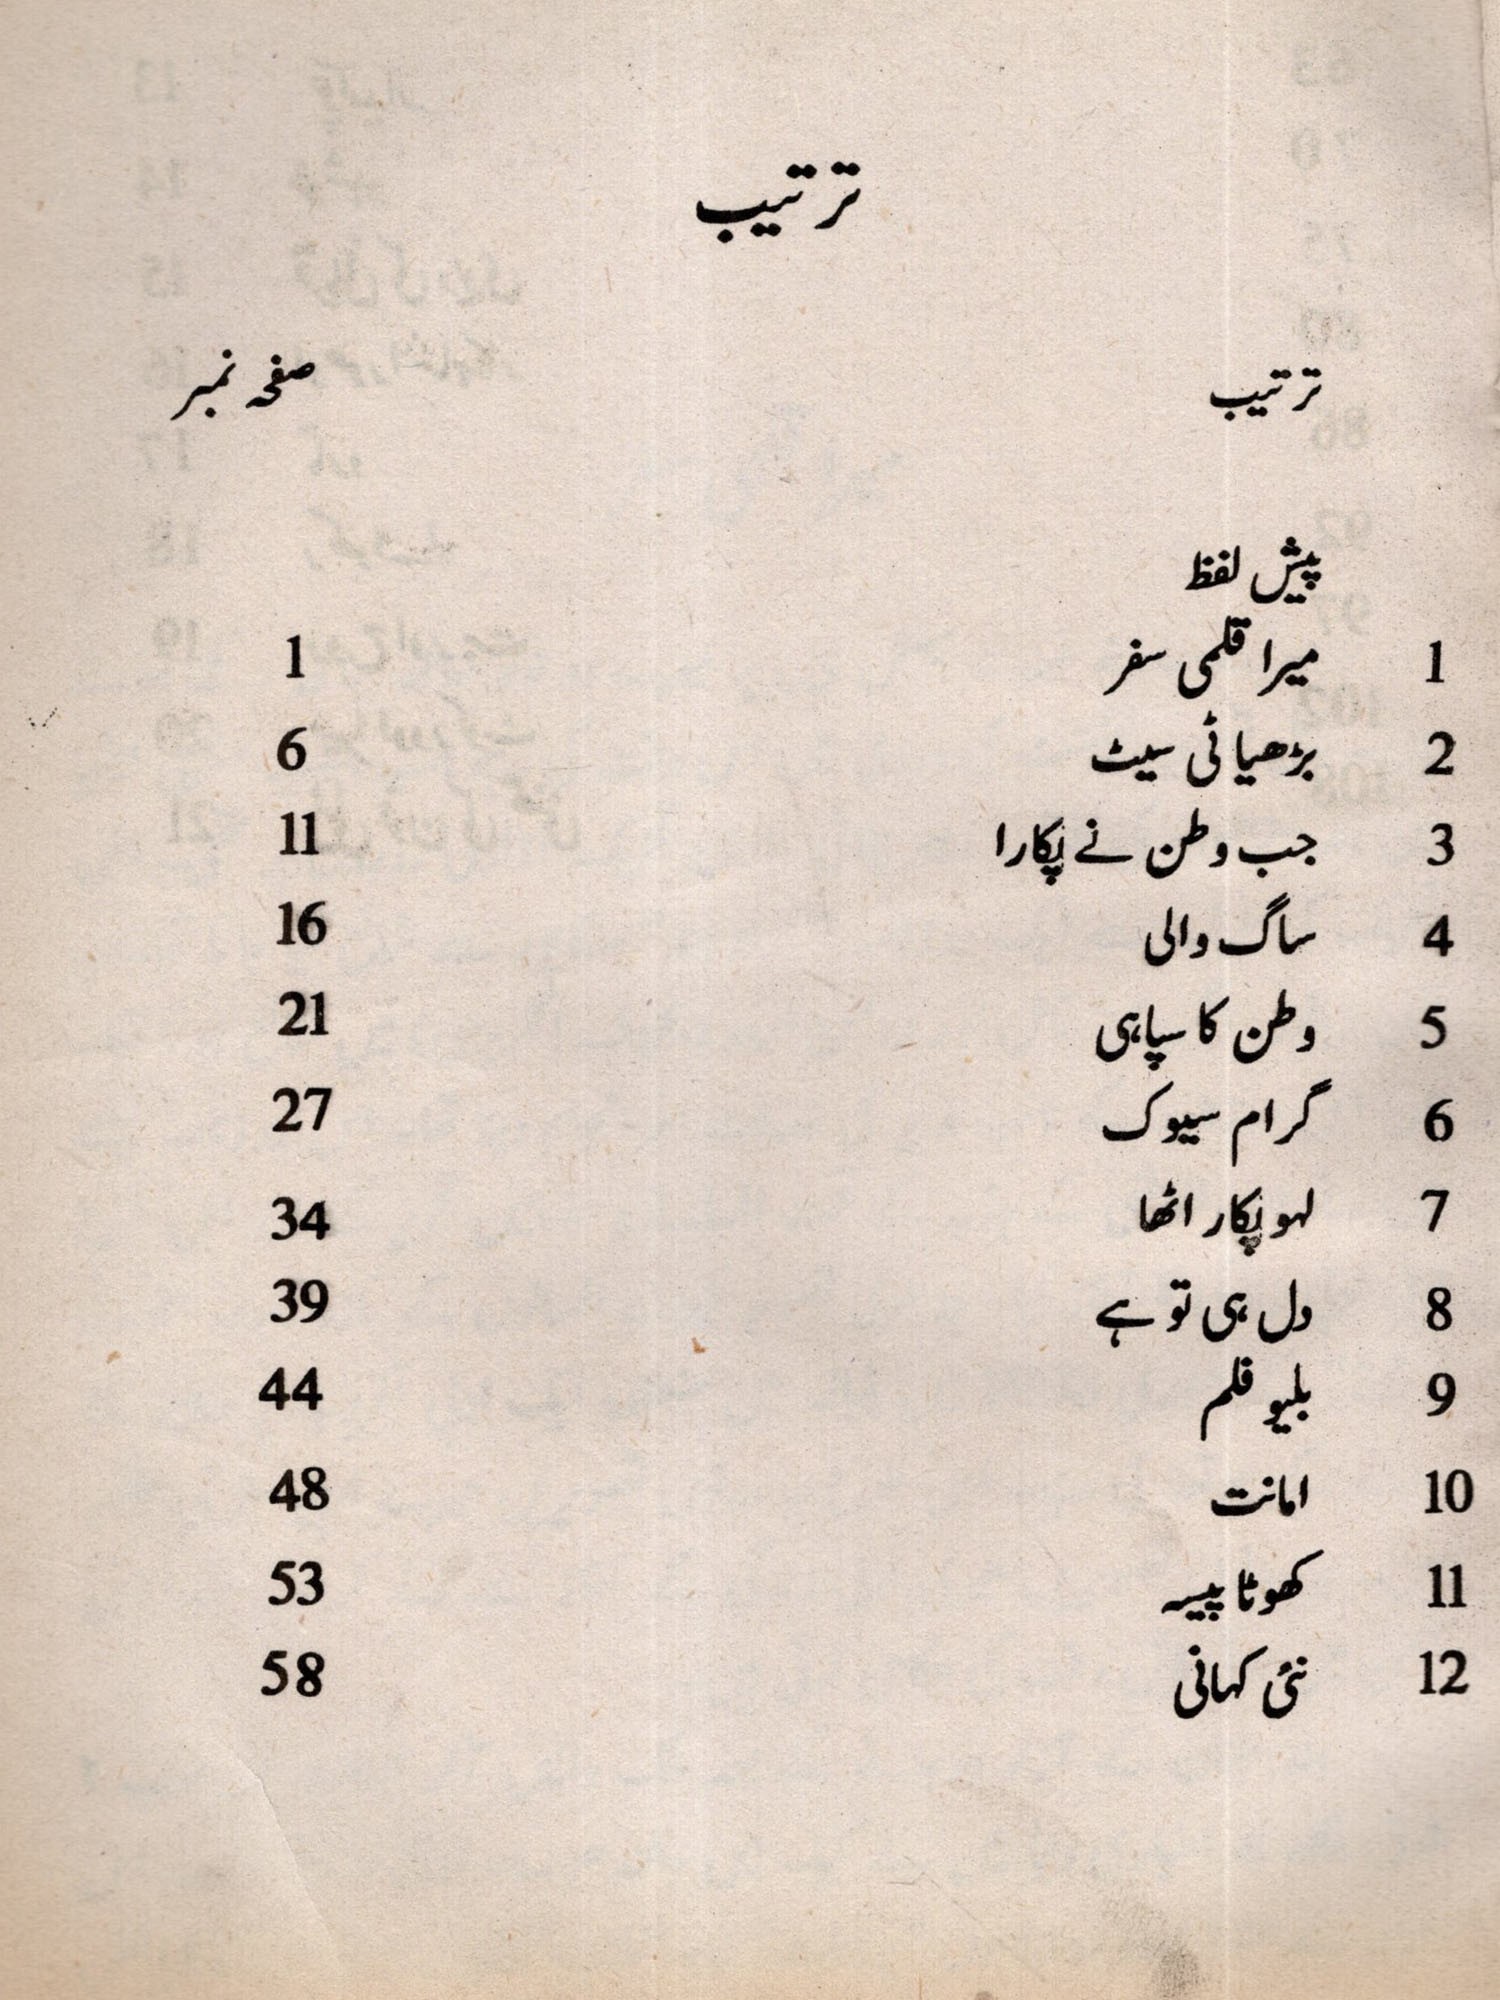 ترتیب
ترتیب صفحہ نمبر
پیش لفظ
1 میرا قلمی سفر 1
2 بڑھیائی سیٹ 6
3 جب وطن نے پکارا 11
4 ساگ والی 16
5 وطن کا سپاہی 21
6 گرام سیوک 27
7 لہو پکار اٹھا 34
8 دل ہی تو ہے 39
9 بلیو فلم 44
10 امانت 48
11 کھوٹا پیسہ 53
12 نئی کہانی 58